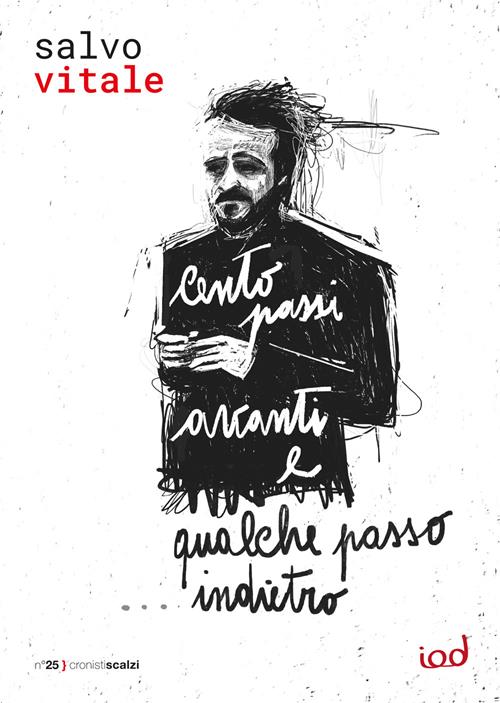 salvo
vitale
cento
passi
avanti
e
qualche passo
.... indietro
n°25 } cronistiscalzi
iod